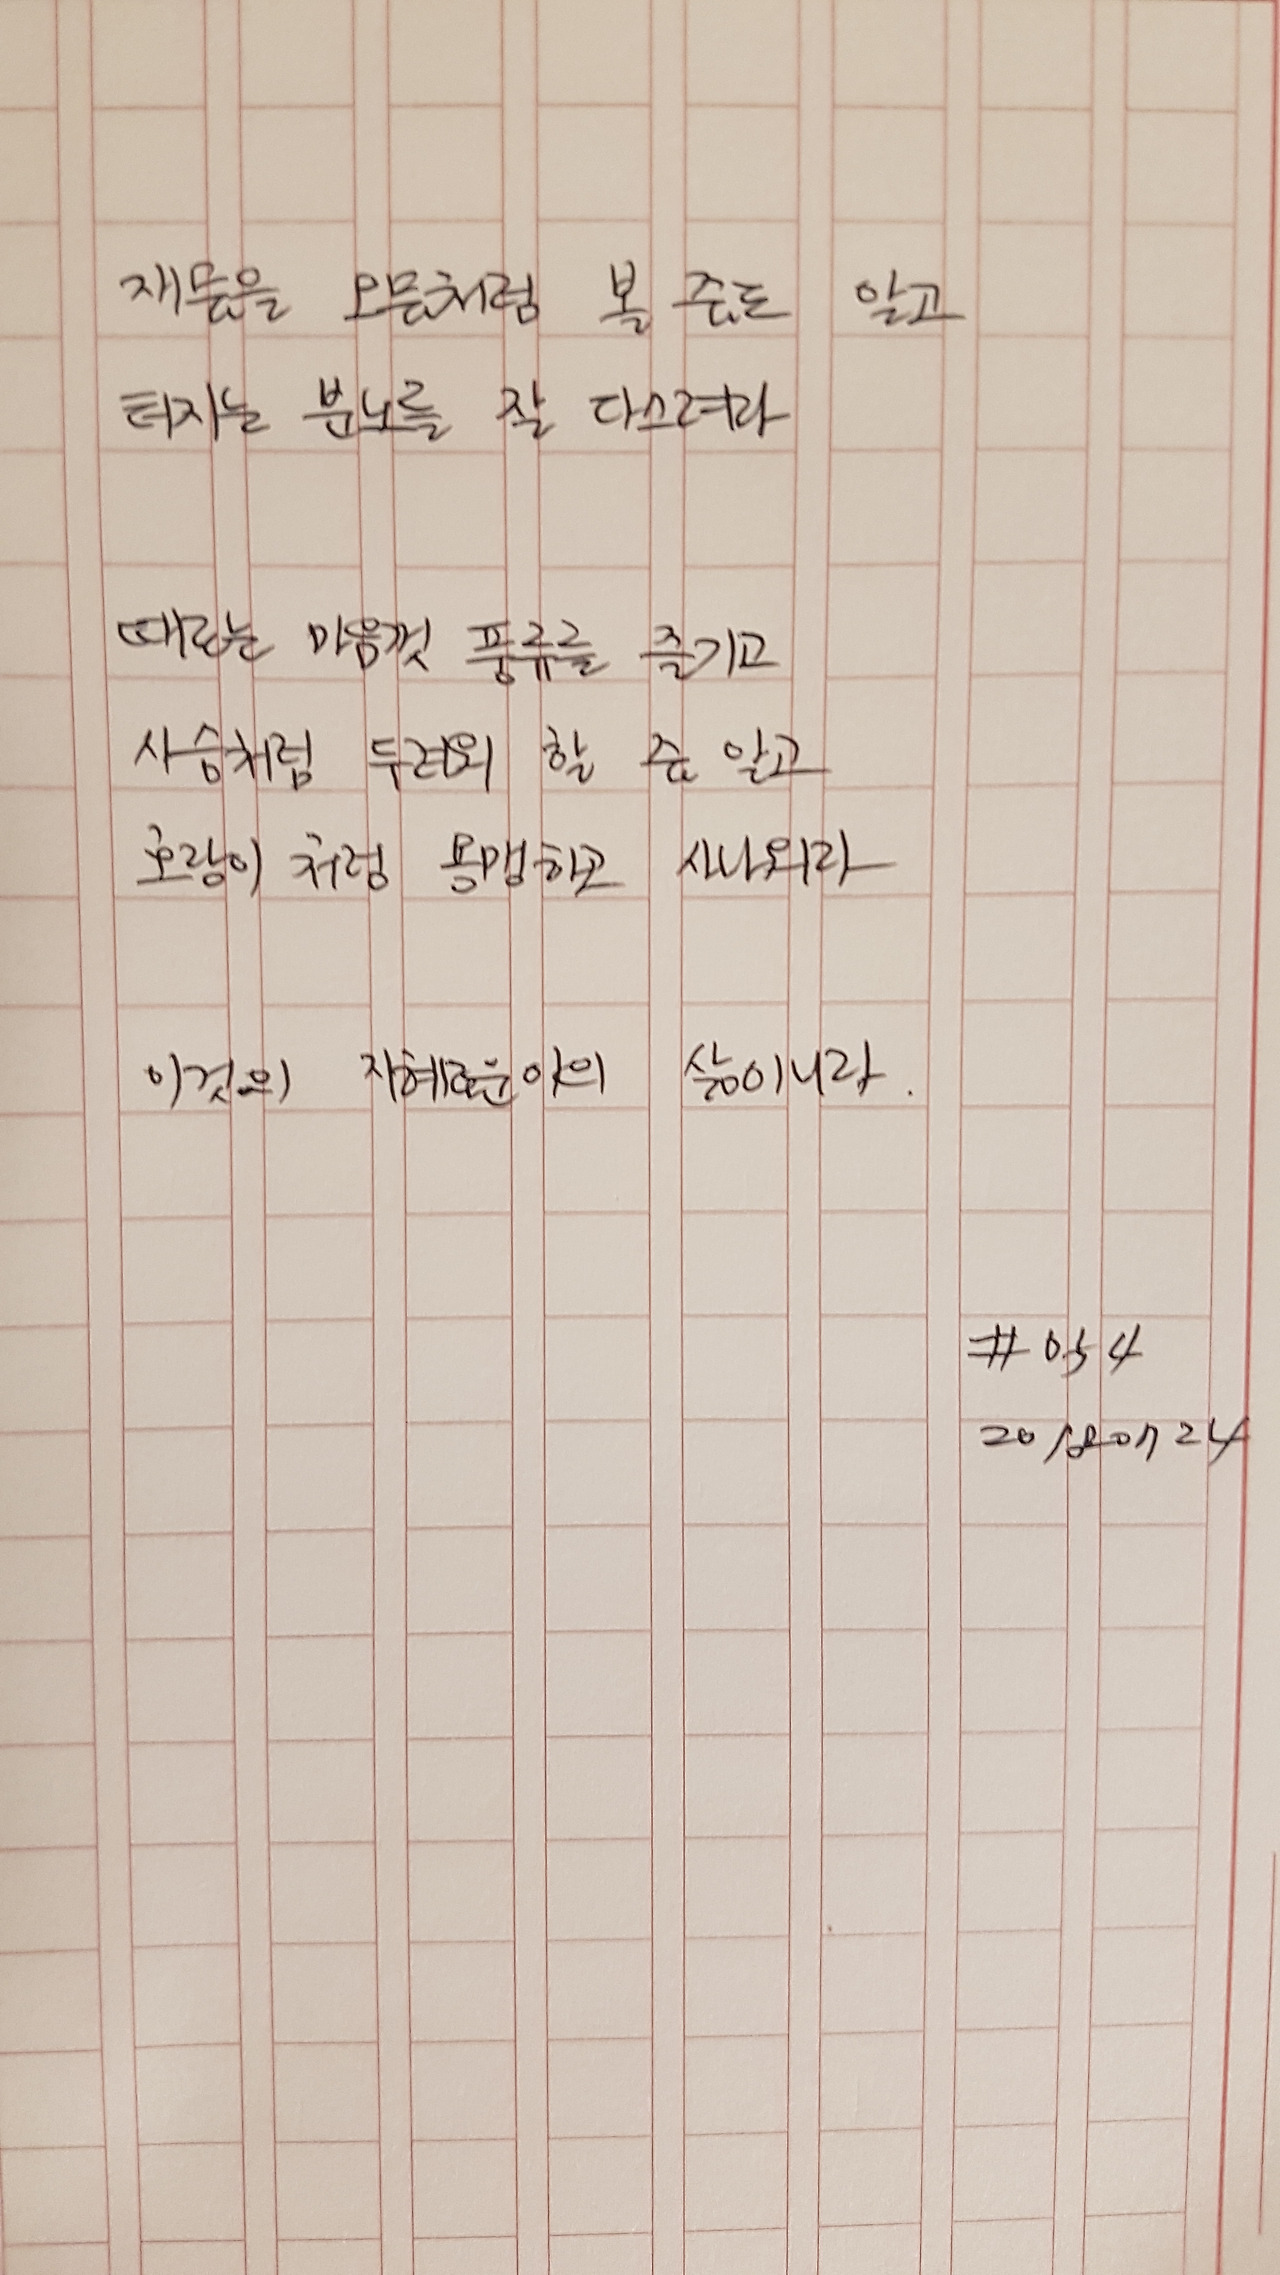 재물을 오물처럼 볼 줄도 알고
터지는 분노를 잘 다스려라
때로는 마음껏 풍류를 즐기고
사슴처럼 두려워 할 줄 알고
호랑이 처럼 용맹하고 사나워라
이것이 지혜로운 이의 삶이니라.
#054
20180724